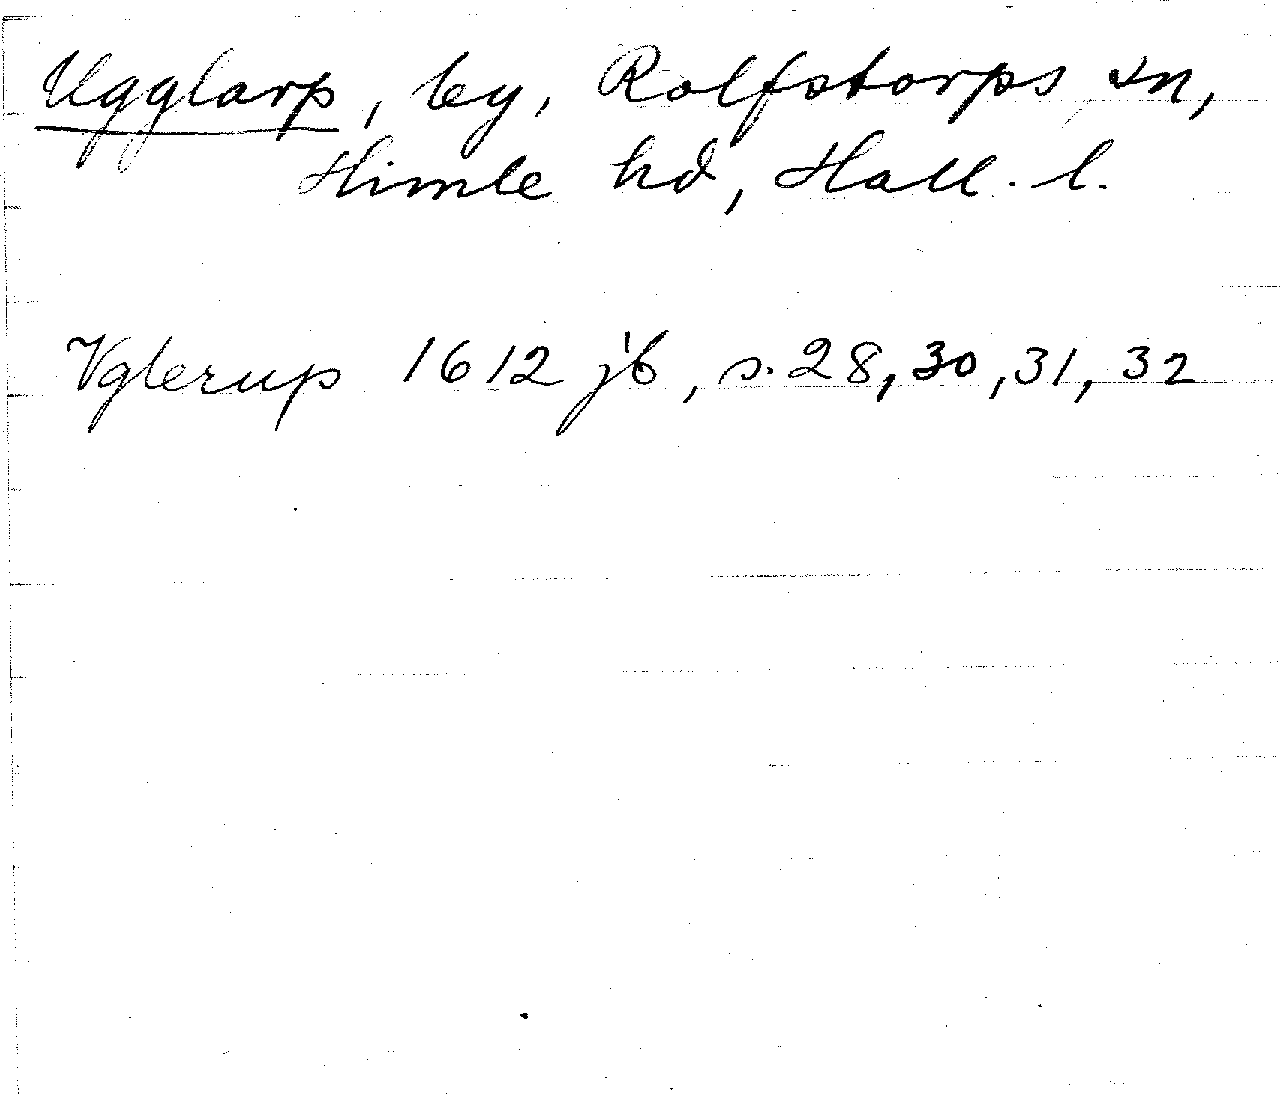 Ugglarp, by, Rolfstorps sn,
Himle hd, Hall. l.
Vglerup 1612 jb, s. 28, 30, 31, 32